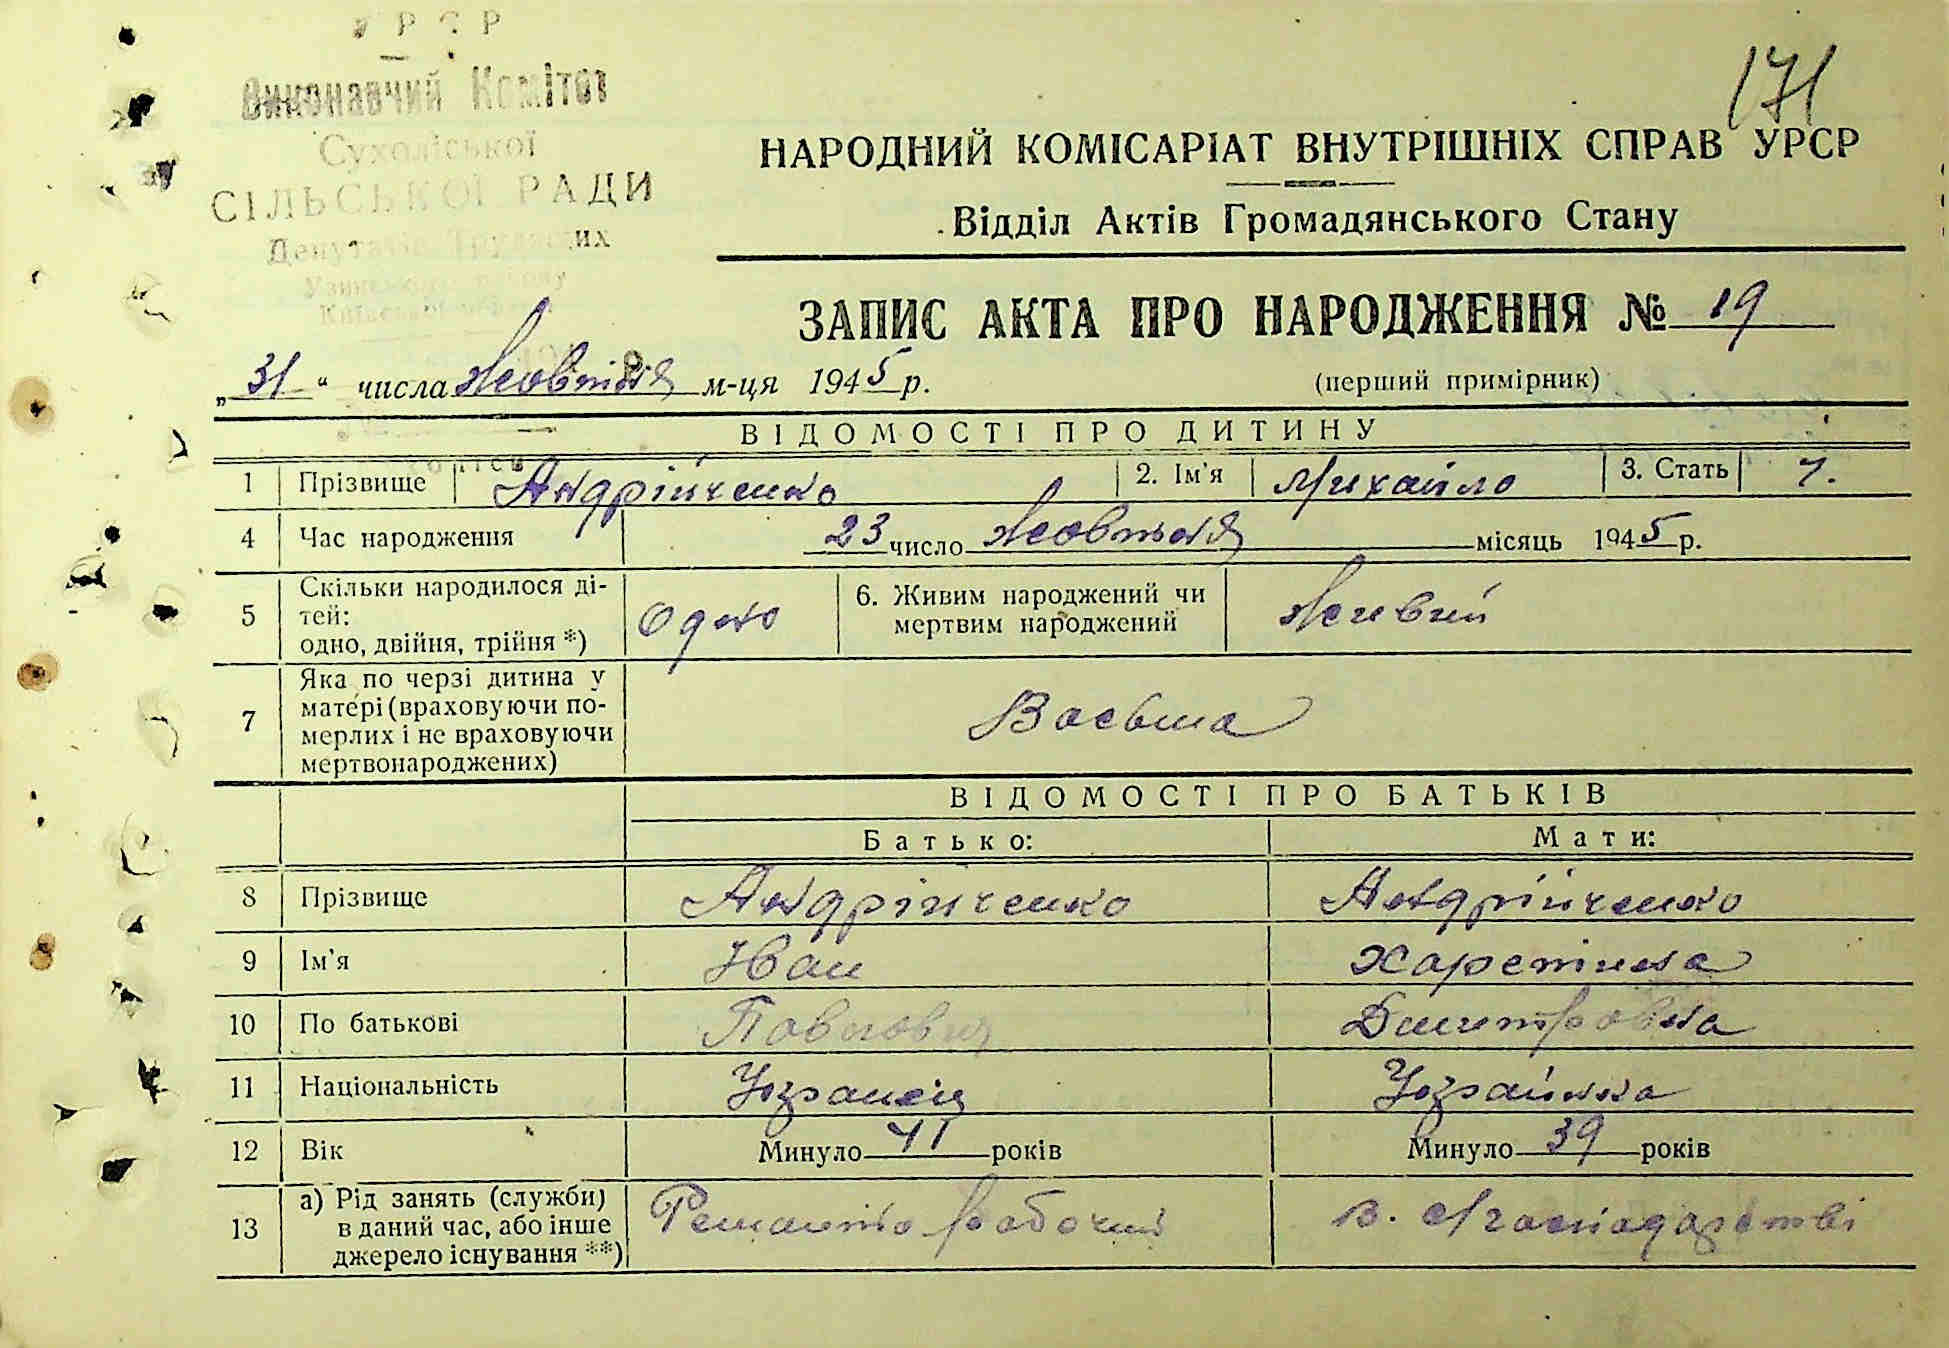 УРСР
Виконавчий Комітет
Сухоліської
СІЛЬСЬКОЇ РАДИ
Депутатів Трудящих
Узинського району
Київської області
171
НАРОДНИЙ КОМІСАРІАТ ВНУТРІШНІХ СПРАВ УРСР
Відділ Актів Громадянського Стану
ЗАПИС АКТА ПРО НАРОДЖЕННЯ № 19
„31“ числа Жовтня м-ця 1945 р. (перший примірник)
ВІДОМОСТІ ПРО ДИТИНУ
1 Прізвище Андрійченко 2. Ім'я Михайло 3. Стать ч.
4 Час народження 23 число Жовтня місяць 1945 р.
5 Скільки народилося ді-
тей:
одно, двійня, трійня *) Одно 6. Живим народжений чи
мертвим народжений Живий
7 Яка по черзі дитина у
матері (враховуючи по-
мерлих і не враховуючи
мертвонароджених) Восьма
ВІДОМОСТІ ПРО БАТЬКІВ
Батько: Мати:
8 Прізвище Андрійченко Андрійченко
9 Ім'я Іван Харетина
10 По батькові Павлович Дмитровна
11 Національність Українець Українка
12 Вік Минуло 41 років Минуло 39 років
13 а) Рід занять (служби)
в даний час, або інше
джерело існування **) робочий В. Господарстві